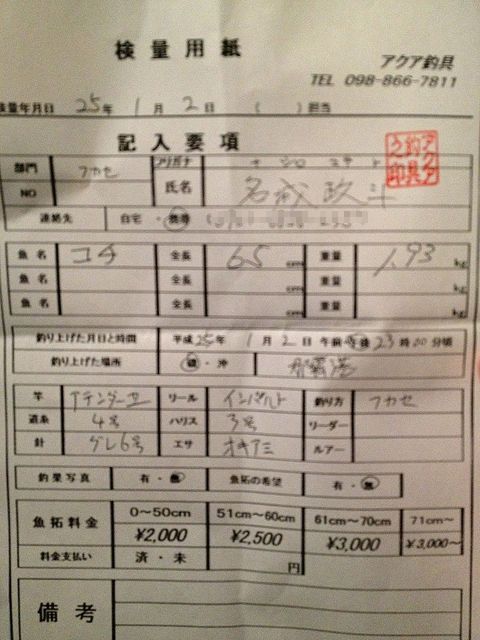 検量用紙
アクア釣具
TEL 098-866-7811
検量年月日 25年 1月 2日 ( )担当
記入要項
アクア釣具之印
部門 フカセ フリガナ ナ シロ
NO 氏名 名城政斗
連絡先 自宅・携帯
魚名 コチ 全長 65 cm 重量 1.93 kg
魚名 全長 cm 重量 kg
魚名 全長 cm 重量 kg
釣り上げた月日と時間 平成25年 1月 2日 午前・午後 23時00分頃
釣り上げた場所 磯・沖 那覇港
竿 アテンダーII リール インパルト 釣り方 フカセ
道糸 4号 ハリス 3号 リーダー
針 グレ6号 エサ オキアミ ルアー
釣果写真 有・無 魚拓の希望 有・無
魚拓料金 0〜50cm 51cm〜60cm 61cm〜70cm 71cm〜
¥2,000 ¥2,500 ¥3,000 ¥3,000〜
料金支払い 済・未 円
備考